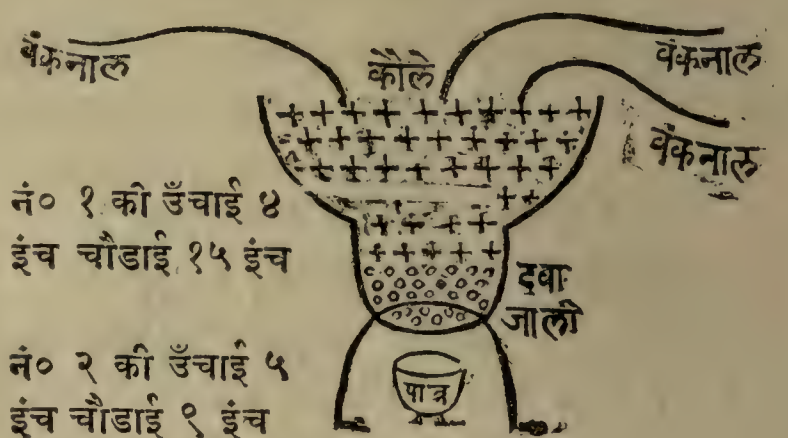 वंकनाल
कौले
वंकनाल
वंकनाल
नं० १ की उँचाई ४
इंच चौडाई १५ इंच
दवा
जाली
नं० २ की उँचाई ५
इंच चौडाई ९ इंच
पात्र